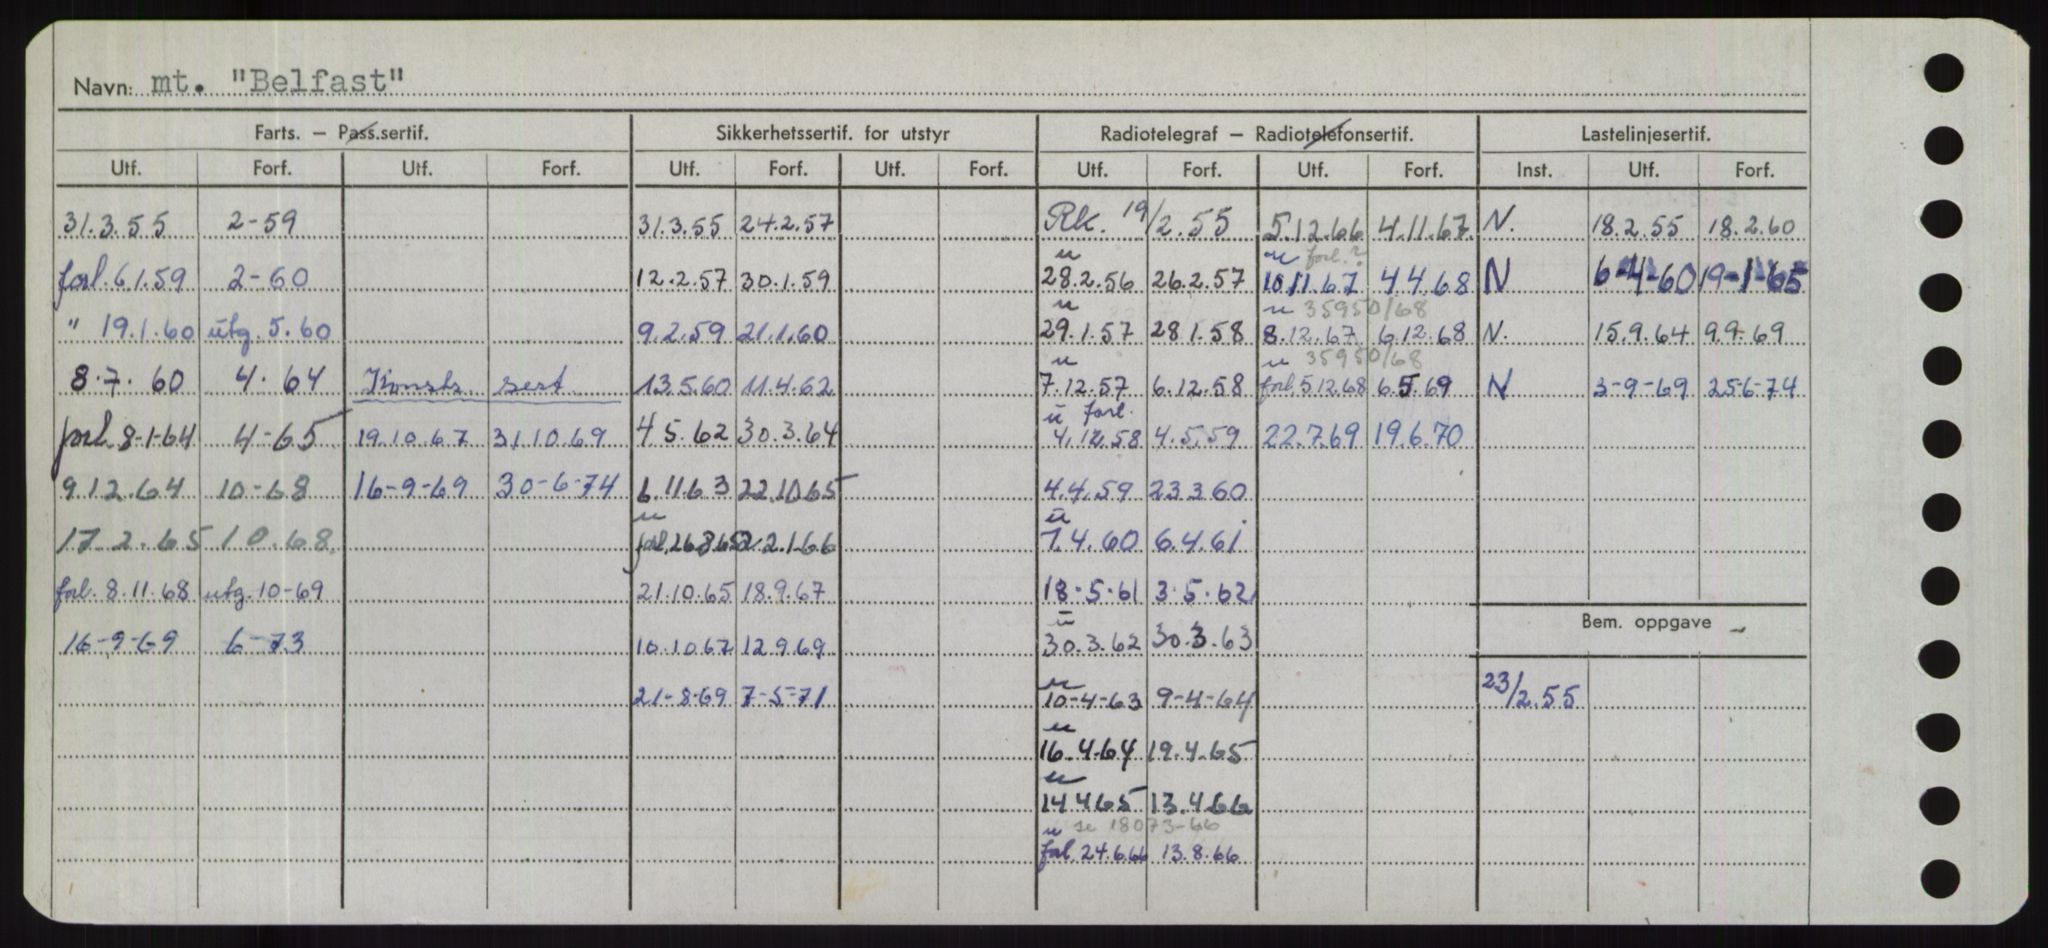 Navn: mt. "Belfast"
Farts. – Pass.sertif. Sikkerhetssertif. for utstyr Radiotelegraf – Radiotelefonsertif. Lastelinjesertif.
Utf. Forf. Utf. Forf. Utf. Forf. Utf. Forf. Utf. Forf. Utf. Forf. Inst. Utf. Forf.
31.3.55 2-59 31.3.55 24.2.57 Rk. 19/2.55 5.12.66 4.11.67 N. 18.2.55 18.2.60
u u forl.?
forl. 6.1.59 2-60 12.2.57 30.1.59 28.2.56 26.2.57 10.11.67 4.4.68 N 6-4-60 19-1-65
u u 35950/68
" 19.1.60 utg. 5.60 9.2.59 21.1.60 29.1.57 28.1.58 8.12.67 6.12.68 N. 15.9.64 9.9.69
u u 35950/68
8.7.60 4.64 Konstr. sert. 13.5.60 11.4.62 7.12.57 6.12.58 forl. 5.12.68 6.5.69 N 3-9-69 25-6-74
u forl.
forl. 8-1-64 4-65 19.10.67 31.10.69 4.5.62 30.3.64 4.12.58 4.5.59 22.7.69 19.6.70
9.12.64 10-68 16-9-69 30-6-74 6.11.63 22.10.65 4.4.59 23.3.60
u u
17.2.65 10.68 forl. 26.8.65 22.1.66 7.4.60 6.4.61
forl. 8.11.68 utg. 10-69 21.10.65 18.9.67 18-5-61 3.5.62
u Bem. oppgave
16-9-69 6-73 10.10.67 12.9.69 30.3.62 30.3.63
u
21-8-69 7-5-71 10-4-63 9-4-64 23/2.55
u
16.4.64 19.4.65
u
14.4.65 13.4.66
u se 18073-66
forl. 24.6.66 13.8.66